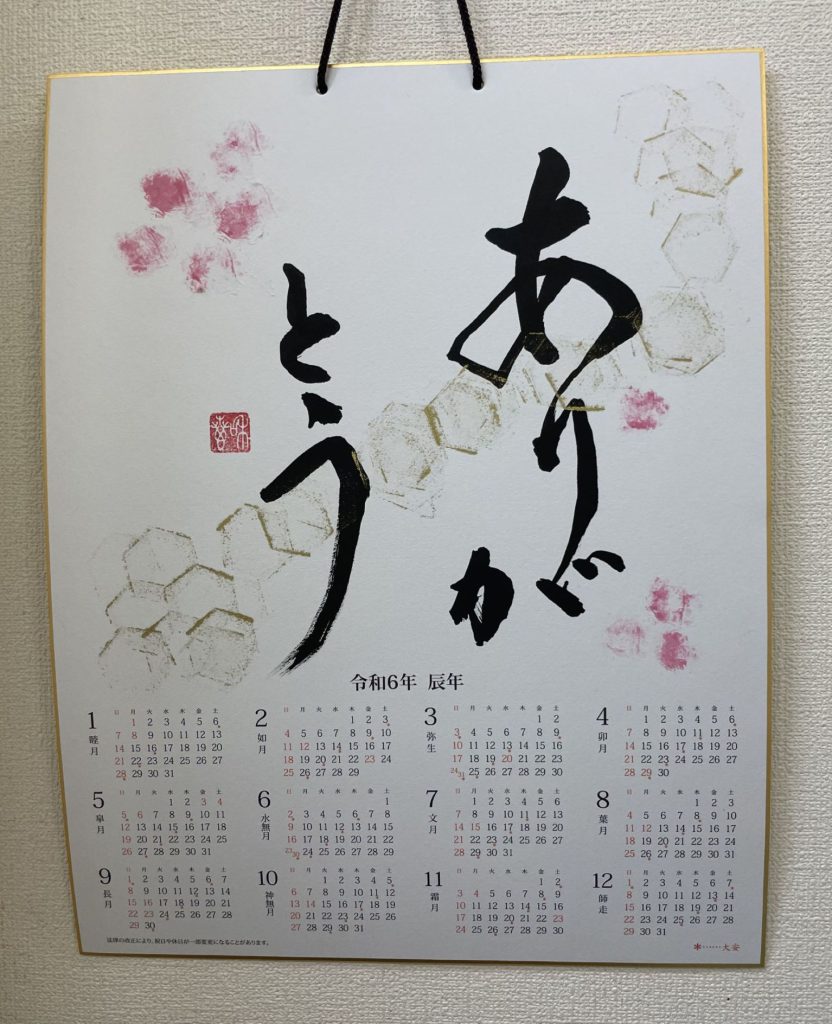 ありが
とう
令和6年 辰年
1 睦月
日 月 火 水 木 金 土
1 2 3 4 5 6
7 8 9 10 11 12 13
14 15 16 17 18 19 20
21 22 23 24 25 26 27
28 29 30 31
2 如月
日 月 火 水 木 金 土
1 2 3
4 5 6 7 8 9 10
11 12 13 14 15 16 17
18 19 20 21 22 23 24
25 26 27 28 29
3 弥生
日 月 火 水 木 金 土
1 2
3 4 5 6 7 8 9
10 11 12 13 14 15 16
17 18 19 20 21 22 23
24/31 25 26 27 28 29 30
4 卯月
日 月 火 水 木 金 土
1 2 3 4 5 6
7 8 9 10 11 12 13
14 15 16 17 18 19 20
21 22 23 24 25 26 27
28 29 30
5 皐月
日 月 火 水 木 金 土
1 2 3 4
5 6 7 8 9 10 11
12 13 14 15 16 17 18
19 20 21 22 23 24 25
26 27 28 29 30 31
6 水無月
日 月 火 水 木 金 土
1
2 3 4 5 6 7 8
9 10 11 12 13 14 15
16 17 18 19 20 21 22
23/30 24 25 26 27 28 29
7 文月
日 月 火 水 木 金 土
1 2 3 4 5 6
7 8 9 10 11 12 13
14 15 16 17 18 19 20
21 22 23 24 25 26 27
28 29 30 31
8 葉月
日 月 火 水 木 金 土
1 2 3
4 5 6 7 8 9 10
11 12 13 14 15 16 17
18 19 20 21 22 23 24
25 26 27 28 29 30 31
9 長月
日 月 火 水 木 金 土
1 2 3 4 5 6 7
8 9 10 11 12 13 14
15 16 17 18 19 20 21
22 23 24 25 26 27 28
29 30
10 神無月
日 月 火 水 木 金 土
1 2 3 4 5
6 7 8 9 10 11 12
13 14 15 16 17 18 19
20 21 22 23 24 25 26
27 28 29 30 31
11 霜月
日 月 火 水 木 金 土
1 2
3 4 5 6 7 8 9
10 11 12 13 14 15 16
17 18 19 20 21 22 23
24 25 26 27 28 29 30
12 師走
日 月 火 水 木 金 土
1 2 3 4 5 6 7
8 9 10 11 12 13 14
15 16 17 18 19 20 21
22 23 24 25 26 27 28
29 30 31
法律の改正により、祝日や休日が一部変更になることがあります。
*……大安